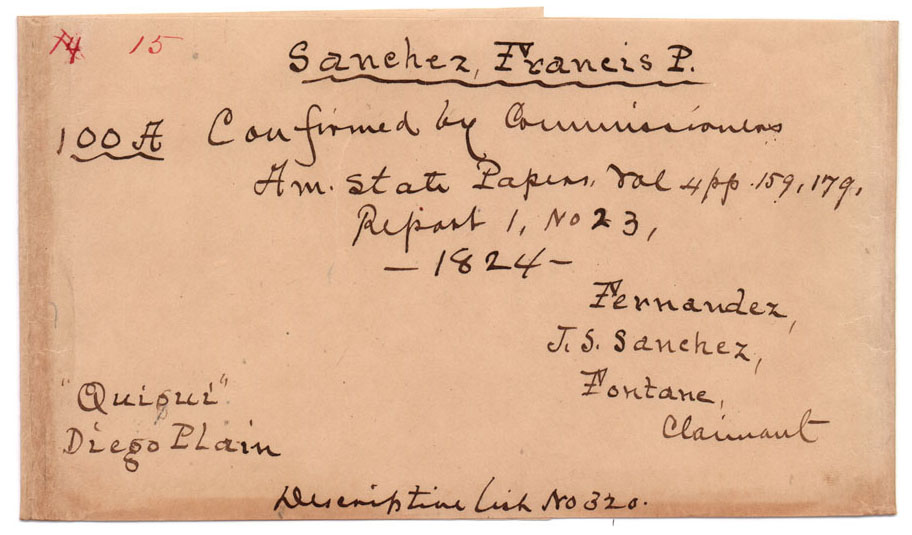 14 15
Sanchez, Francis P.
100 A Confirmed by Commissioners
Am. State Papers, Vol 4 pp. 159, 179,
Report 1, No 23,
— 1824 —
Fernandez,
J. S. Sanchez,
Fontane,
Claimant
"Quiqui"
Diego Plain
Descriptive list No 320.